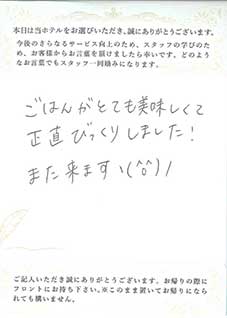 本日は当ホテルをお選びいただき、誠にありがとうございます。
今後のさらなるサービス向上のため、スタッフの学びのため、お客様からお言葉を頂けましたら幸いです。どのようなお言葉でもスタッフ一同励みになります。
ごはんがとても美味しくて
正直びっくりしました!
また来ますヽ(^o^)丿
ご記入いただき誠にありがとうございます。お帰りの際に
フロントにお持ち下さい。※このまま置いてお帰りになら
れても構いません。